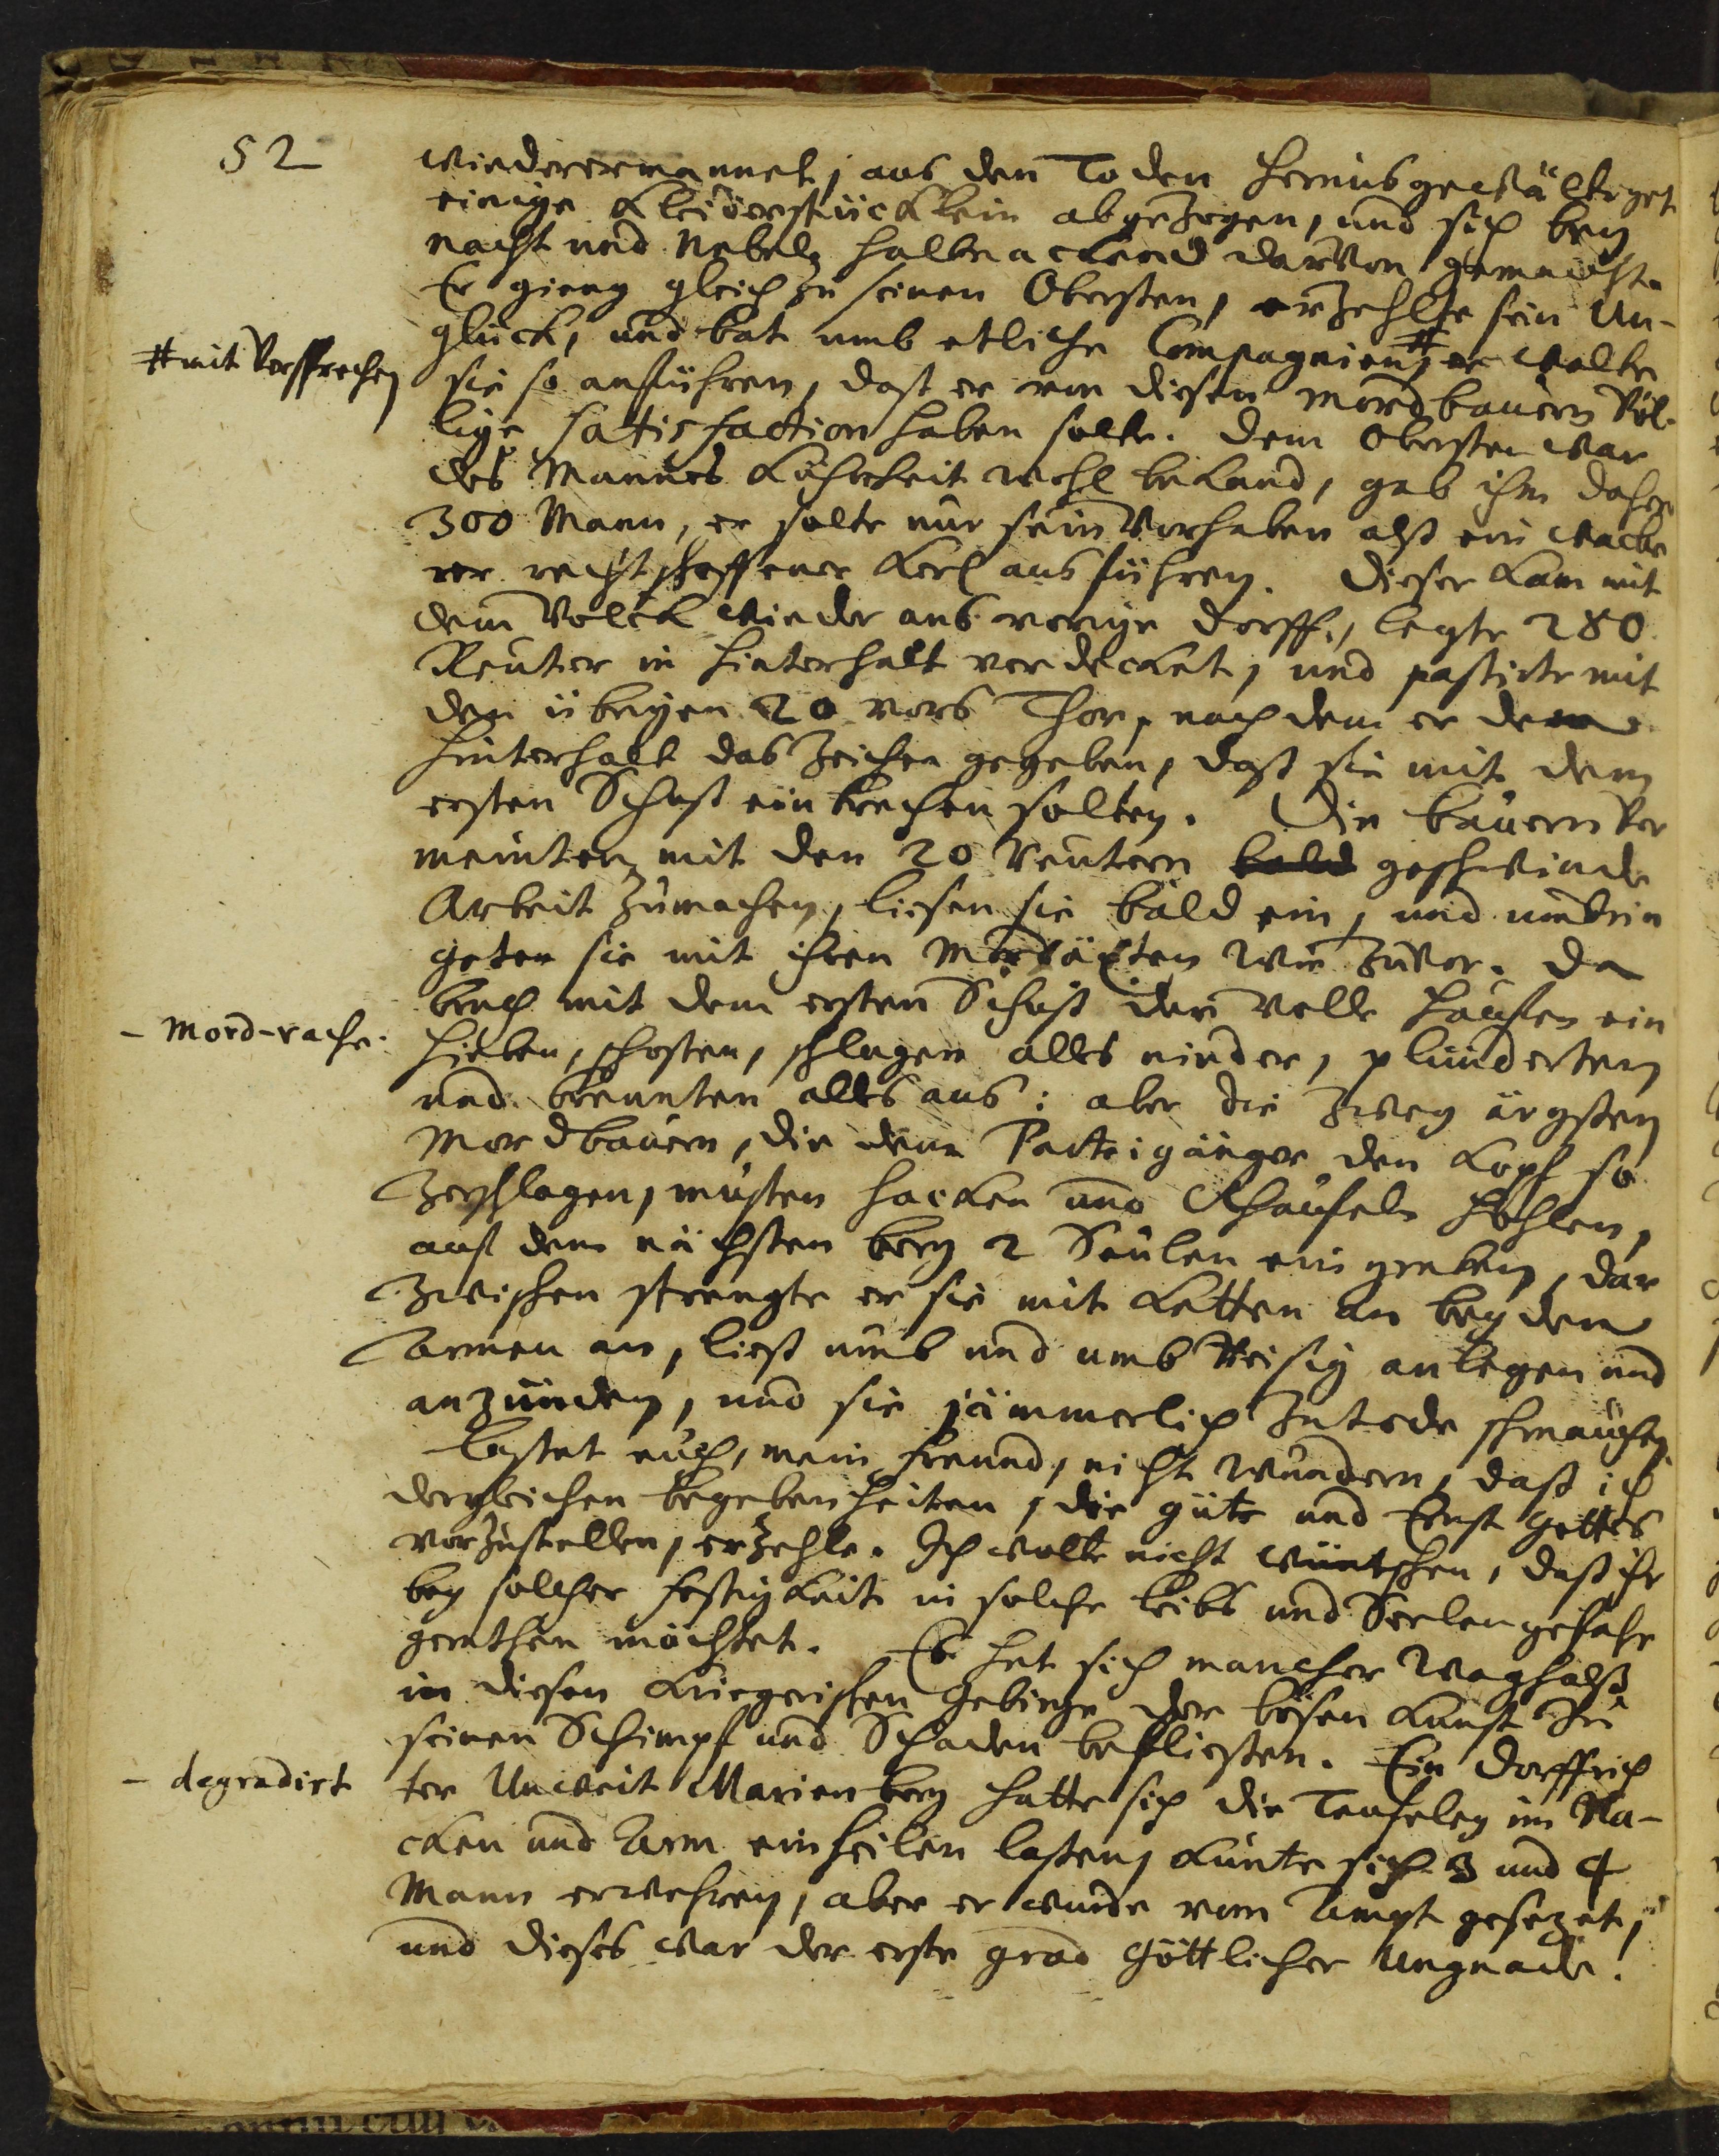 52
wiederermannet, aus den Toden herausgewältziget
einige Kleiderstücklein abgezogen, und sich bey
nacht und Nebel halbnackend darvon gemacht.
Er gieng gleich zu seinen Obersten, erzehlte sein Un-
glück, und bat umb etliche Compagnien, # er wolte
# mit Versprechen
sie so anführen, daß er von diesen mordbauern völ-
lige satisfaction haben solte. dem Obersten war
des Mannes Kühnheit wohl bekand, gab ihm daher
300 Mann, er solte nur sein Vorhaben alß ein wacke
rer rechtschaffener Kerl ausführen. Dieser kam mit
dem Volck wieder ans vorige dorff, legte 280
Reuter in hinterhalt verdecket, und passirte mit
den übrigen 20 vors Thor, nach dem er dem
hinterhalt das Zeichen gegeben, daß sie mit dem
ersten Schuß einbrechen solten. Die bauern ver
meinten mit den 20 Reutern bald geschwinde
Arbeit zumachen, liesen sie bald ein, und umbrin
geten sie mit ihren Mordäxten wie zuvor. Da
brach mit dem ersten Schuß der volle hauffen ein
- Mord-rache.
hieben, schosten, schlugen alles nieder, plünderten
und brennten alles aus: aber die zwey ärgsten
Mordbauern, die dem Parteigänger den Kopf so
zerschlagen, musten hacken und schaufeln hohlen,
auf dem nächsten berg 2 Seulen eingraben, dar
zwischen strengte er sie mit Ketten an beyden
Armen an, ließ umb und umb Reisig anlegen und
anzünden, und sie jämmerlich zutode schmauchen
Lastet euch, mein freund, nicht wundern, daß ich
dergleichen begebenheiten, die güte und Ernst Gottes
vorzustellen, erzehle. Ich wolte nicht wüntschen, daß ihr
bey solcher festigkeit in solche leibs und Seelengefahr
gerathen möchtet. Es hat sich mancher Waghalß
in diesen Kriegerischen Gebirge der bösen Kunst zu
seinen Schimpf und Schaden befliesten. Ein dorffrich
- degradirt
ter Unweit Marienberg hatte sich die Teufeley im Na-
cken und Arm einheilen lasten, kunte sich 3 und 4
Mann erwehren, aber er wurde vom Ampt gesezet,
und dieses war der erste grad Göttlicher Ungnade!